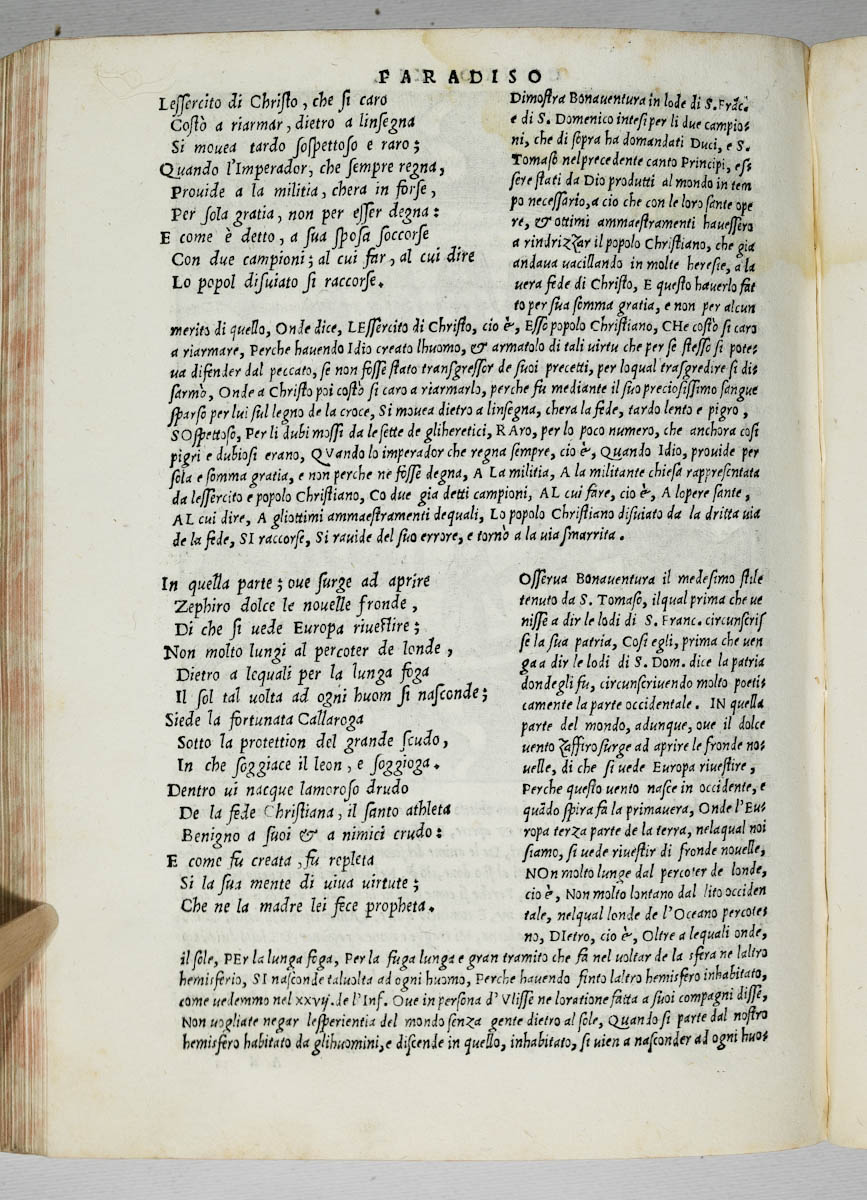 PARADISO
Lessercito di Christo, che si caro
Costò a riarmar, dietro a linsegna
Si movea tardo sospettoso e raro;
Quando l'Imperador, che sempre regna,
Provide a la militia, chera in forse,
Per sola gratia, non per esser degna:
E come è detto, a sua sposa soccorse
Con due campioni; al cui far, al cui dire
Lo popol disuiato si raccorse.
Dimostra Bonaventura in lode di S. Frãc.
e di S. Domenico intesi per li due campio=
ni, che di sopra ha domandati Duci, e S.
Tomaso nel precedente canto Principi, es=
sere stati da Dio produtti al mondo in tem
po necessario, a cio che con le loro sante ope
re, & ottimi ammaestramenti havessero
a rindrizzar il popolo Christiano, che gia
andava vacillando in molte heresie, a la
vera fede di Christo, E questo haverlo fat
to per sua somma gratia, e non per alcun
merito di quello, Onde dice, LEssercito di Christo, cio è, Esso popolo Christiano, CHe costò si caro
a riarmare, Perche havendo Idio creato lhuomo, & armatolo di tali virtu che per se stesso si pote=
va difender dal peccato, se non fosse stato transgressor de suoi precetti, per loqual trasgredire si di=
sarmò, Onde a Christo poi costò si caro a riarmarlo, perche fu mediante il suo preciosissimo sangue
sparso per lui sul legno de la croce, Si movea dietro a linsegna, chera la fede, tardo lento e pigro,
SOspettoso, Per li dubi mossi da le sette de gliheretici, RAro, per lo poco numero, che anchora cosi
pigri e dubiosi erano, QVando lo imperador che regna sempre, cio è, Quando Idio, provide per
sola e somma gratia, e non perche ne fosse degna, A La militia, A la militante chiesa rappresentata
da lessercito e popolo Christiano, Co due gia detti campioni, AL cui fare, cio è, A lopere sante,
AL cui dire, A gliottimi ammaestramenti dequali, Lo popolo Christiano disuiato da la dritta via
de la fede, SI raccorse, Si ravide del suo errore, e tornò a la via smarrita.
In quella parte; ove surge ad aprire
Zephiro dolce le novelle fronde,
Di che si vede Europa rivestire;
Non molto lungi al percoter de londe,
Dietro a lequali per la lunga foga
Il sol tal volta ad ogni huom si nasconde;
Siede la fortunata Callaroga
Sotto la protettion del grande scudo,
In che soggiace il leon, e soggioga.
Dentro vi nacque lamoroso drudo
De la fede Christiana, il santo athleta
Benigno a suoi & a nimici crudo:
E come fu creata, fu repleta
Si la sua mente di viva virtute;
Che ne la madre lei fece propheta.
Osserva Bonaventura il medesimo stile
tenuto da S. Tomaso, ilqual prima che ve
nisse a dir le lodi di S. Franc. circunscris
se la sua patria, Cosi egli, prima che ven
ga a dir le lodi di S. Dom. dice la patria
dondegli fu, circunscrivendo molto poeti=
camente la parte occidentale. IN quella
parte del mondo, adunque, ove il dolce
vento Zaffiro surge ad aprire le fronde no=
velle, di che si vede Europa rivestire,
Perche questo vento nasce in occidente, e
quãdo spira fa la primavera, Onde l'Eu=
ropa terza parte de la terra, nelaqual noi
siamo, si vede rivestir di fronde novelle,
NOn molto lunge dal percoter de londe,
cio è, Non molto lontano dal lito occiden
tale, nelqual londe de l'Oceano percote=
no, DIetro, cio è, Oltre a lequali onde,
il sole, PEr la lunga foga, Per la fuga lunga e gran tramito che fa nel voltar de la sfera ne laltro
hemisferio, SI nasconde talvolta ad ogni huomo, Perche havendo finto laltro hemisfero inhabitato,
come vedemmo nel xxvij. de l'Inf. Ove in persona d'Vlisse ne loratione fatta a suoi compagni disse,
Non vogliate negar lesperientia del mondo senza gente dietro al sole, Quando si parte dal nostro
hemisfero habitato da glihuomini, e discende in quello, inhabitato, si vien a nasconder ad ogni huo=